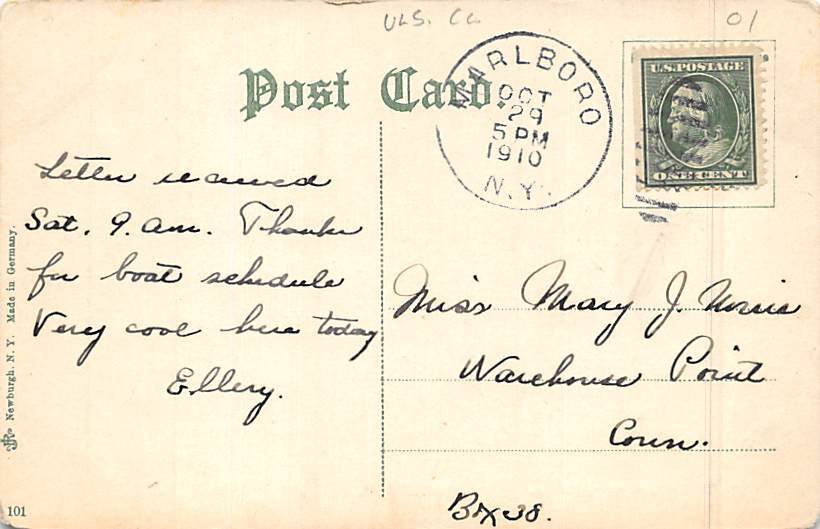 ULS. CO.
01
Post Card.
MARLBORO
OCT
29
5 PM
1910
N.Y.
U.S. POSTAGE
ONE CENT
Letter received
Sat. 9. am. Thanks
for boat schedule
Very cool here today
Ellery.
Miss Mary J. Norris
Warehouse Point
Conn.
Box 38.
Newburgh. N. Y. Made in Germany.
101